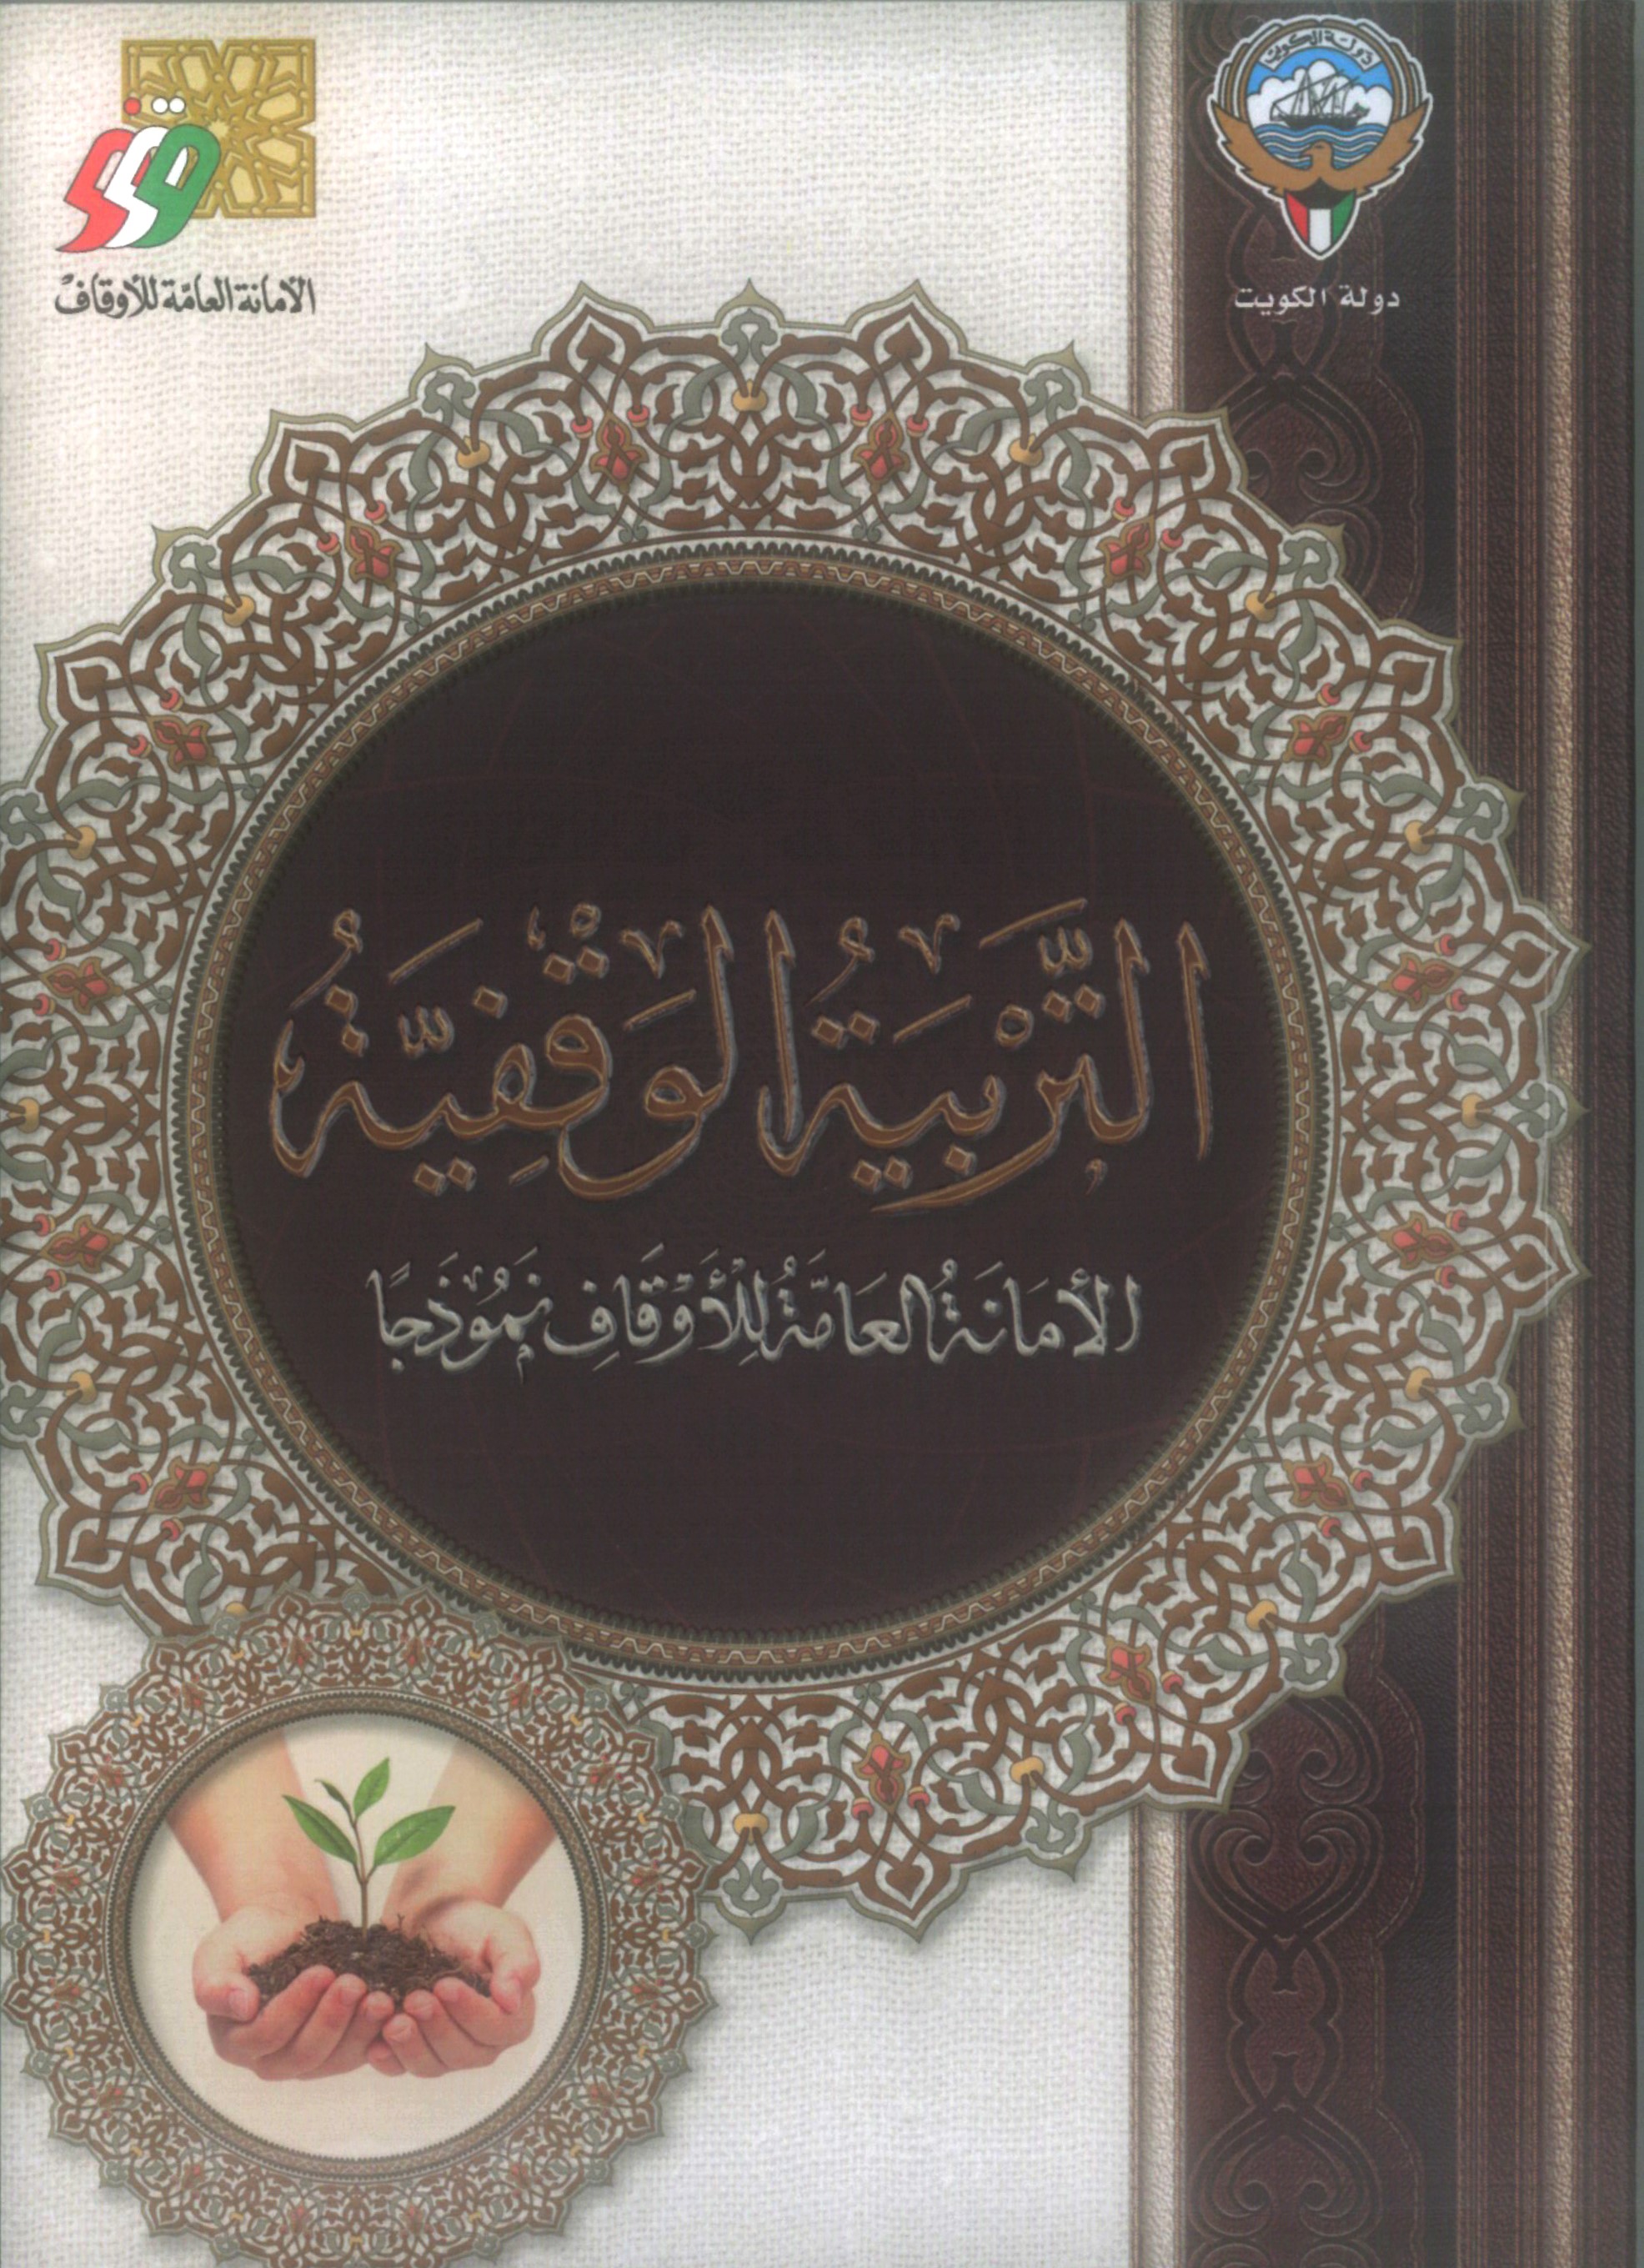 دولة الكويت
دولة الكويت
الأمانة العامة للأوقاف
التَّرْبِيَةُ الوَقْفِيَّةُ
الأَمَانَةُ العَامَّةُ لِلْأَوْقَافِ نَمُوذَجًا